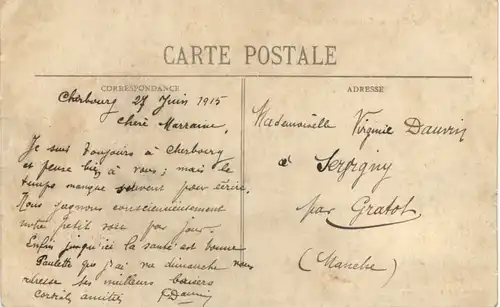 CARTE POSTALE
CORRESPONDANCE
Cherbourg 27 Juin 1915
Chère Marraine,
Je suis toujours à Cherbourg
et pense bien à vous ; mais le
temps manque souvent pour écrire.
Nous gagnons consciencieusement
notre petit sou par jour.
Enfin jusqu'ici la santé est bonne
Paulette que j'ai vu dimanche vous
adresse ses meilleurs baisers
Cordiales amitiés Dauvin
ADRESSE
Mademoiselle Virginie Dauvin
à
par Gratot
(Manche)